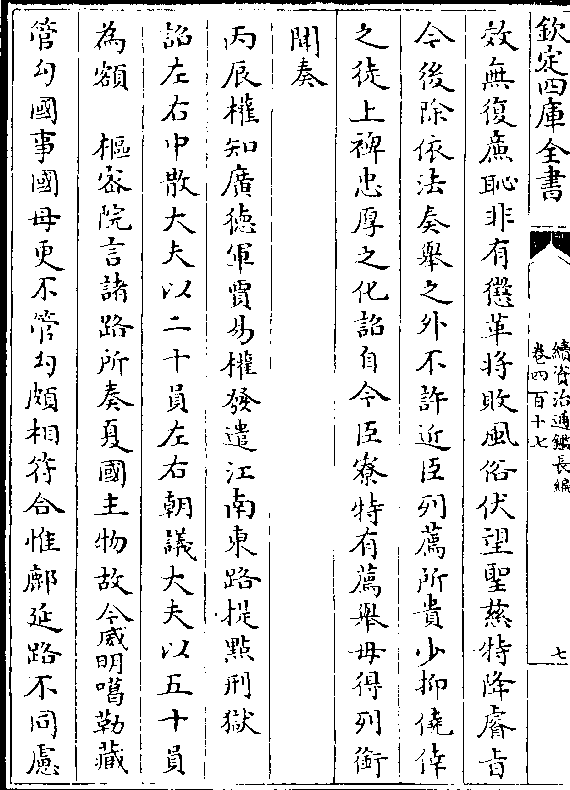 欽定四庫全書
續資治通鑑長編
卷四百十七
七
效無復廉恥非有懲革將敗風俗伏望聖慈特降睿旨
今後除依法奏舉之外不許近臣列薦所貴少抑僥倖
之徒上裨忠厚之化詔自今臣寮特有薦舉毋得列銜
聞奏
丙辰權知廣德軍賈易權發遣江南東路提點刑獄
詔左右中散大夫以二十員左右朝議大夫以五十員
為額　樞密院言諸路所奏夏國主物故今威明噶勒藏
管勾國事國母更不管勾頗相符合惟鄜延路不同慮